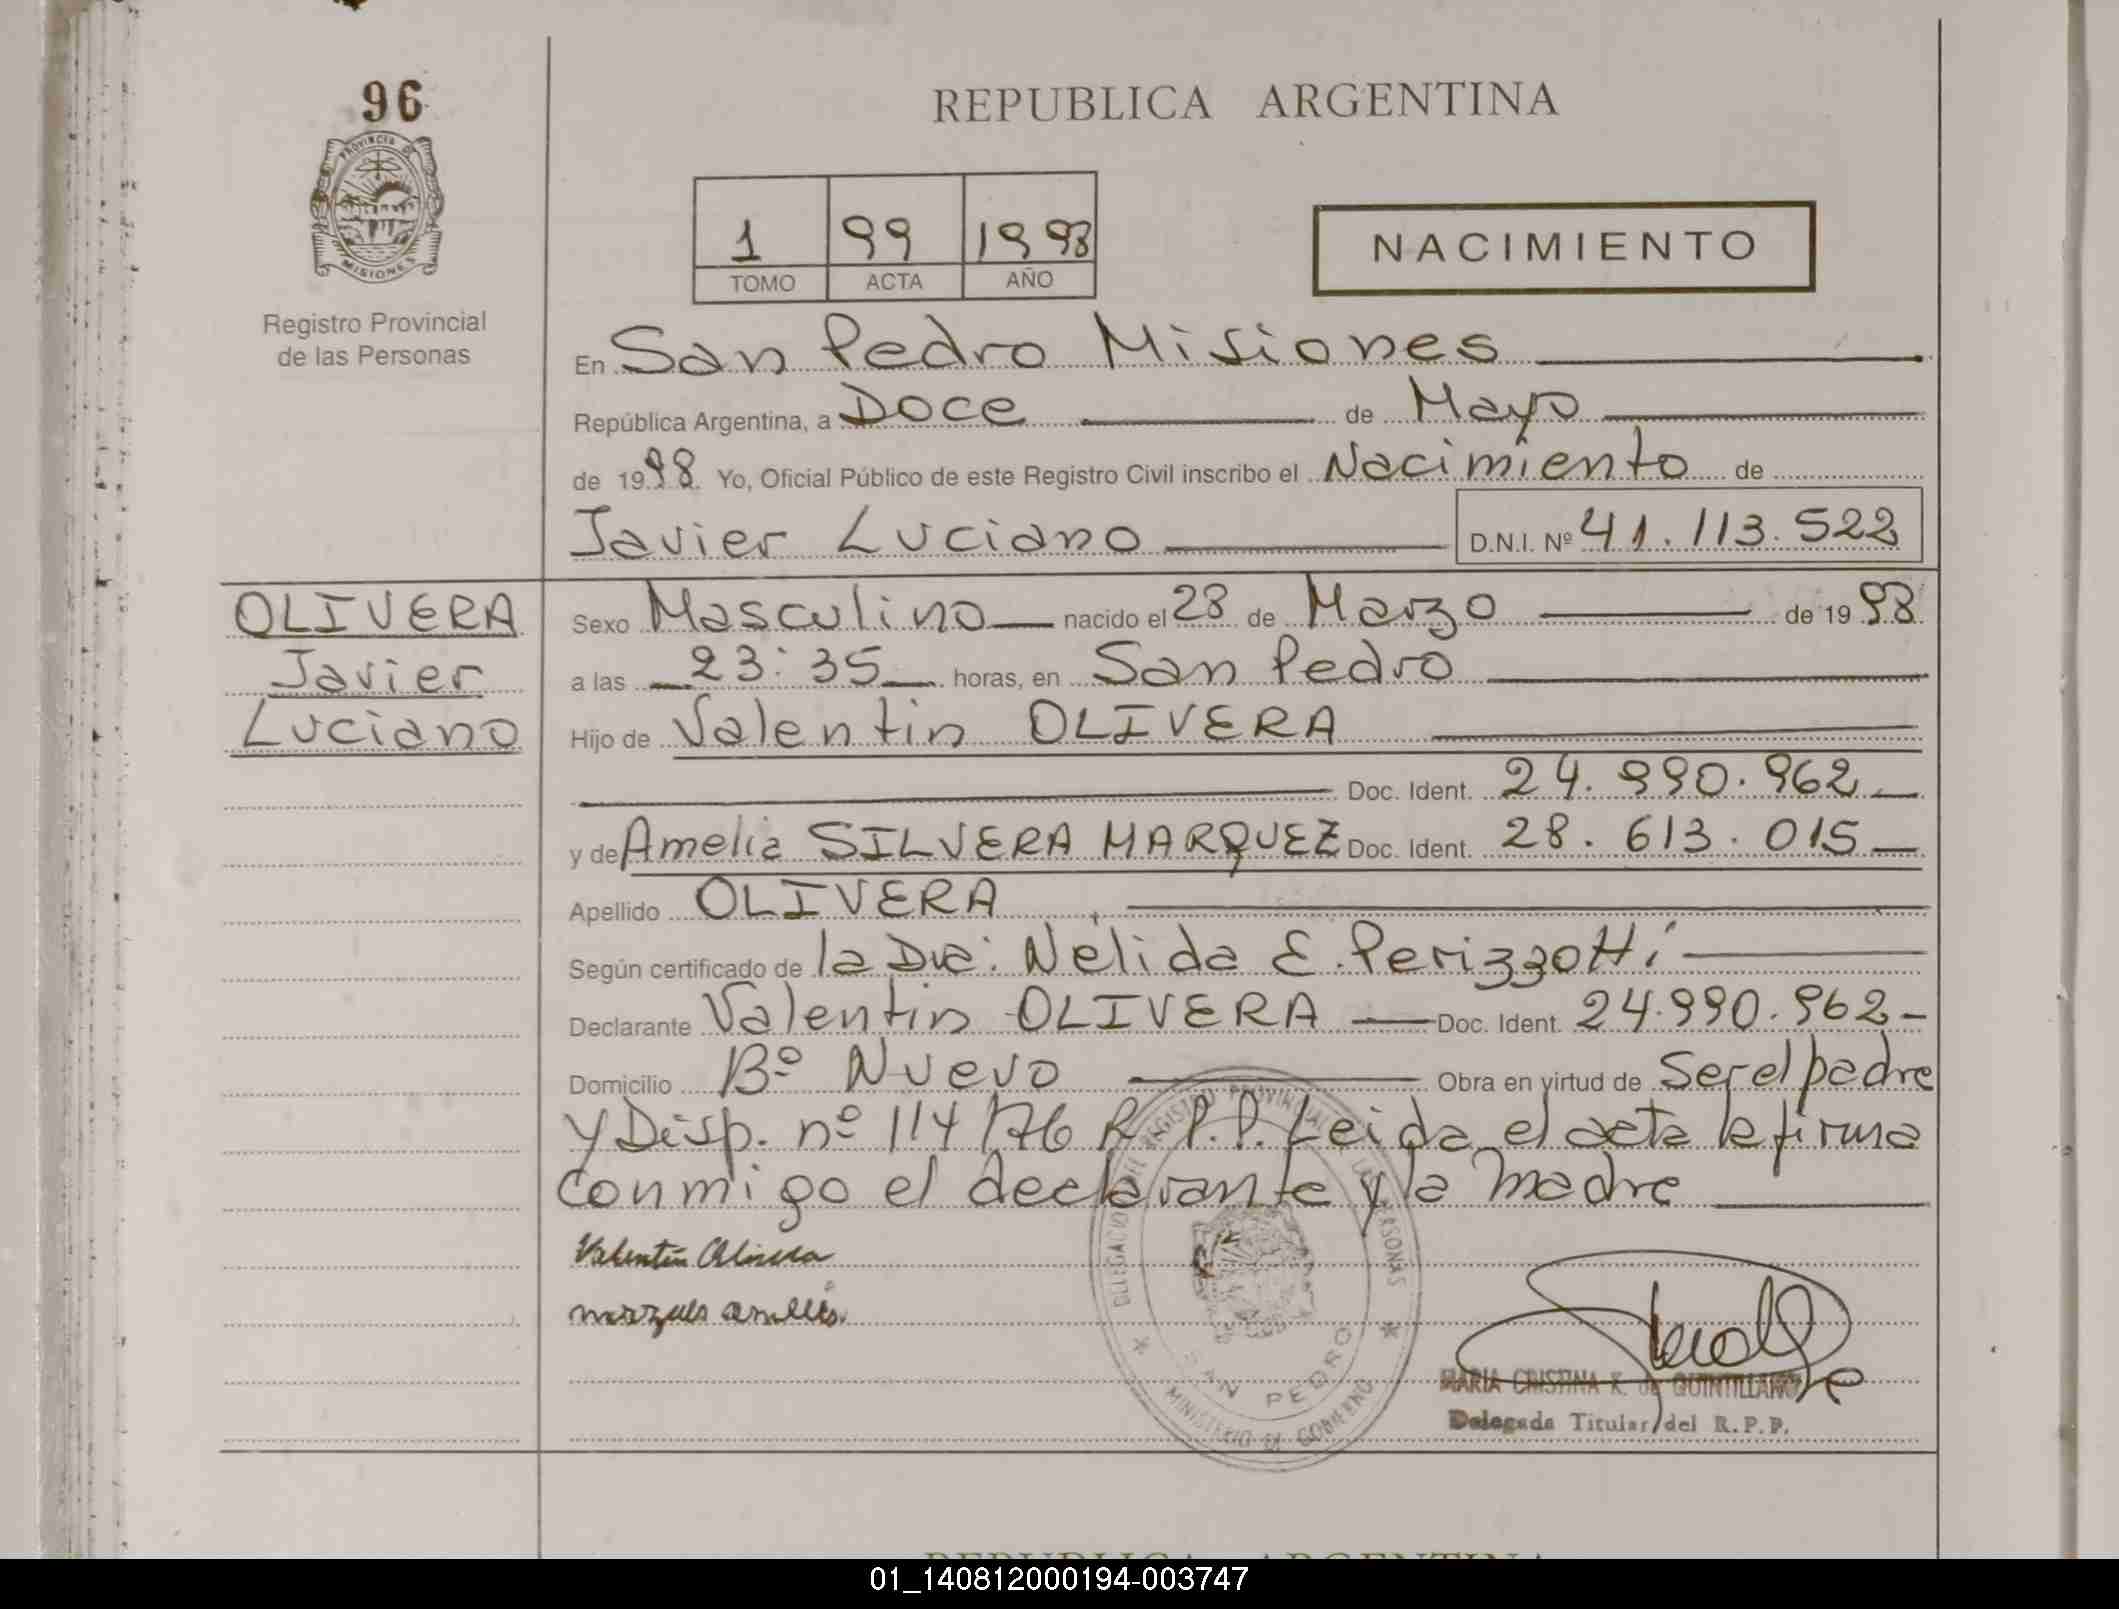 96
PROVINCIA DE
MISIONES
Registro Provincial
de las Personas
REPUBLICA ARGENTINA
1 99 1998
TOMO ACTA AÑO
NACIMIENTO
En San Pedro Misiones
República Argentina, a Doce de Mayo
de 1998 Yo, Oficial Público de este Registro Civil inscribo el Nacimiento de
Javier Luciano D.N.I. Nº 41.113.522
OLIVERA
Javier
Luciano
Sexo Masculino nacido el 28 de Marzo de 1998
a las 23:35 horas, en San Pedro
Hijo de Valentin OLIVERA
Doc. Ident. 24.990.962
y de Amelia SILVERA MARQUEZ Doc. Ident. 28.613.015
Apellido OLIVERA
Según certificado de la Dra: Nélida E. Perizzotti
Declarante Valentin OLIVERA Doc. Ident. 24.990.962
Domicilio Bº Nuevo Obra en virtud de Ser el padre
y Disp. nº 114/76 R.P.P. Leida el acta la firma
conmigo el declarante y la madre
Valentin Olivera
DELEGACION DEL REGISTRO PROVINCIAL DE LAS PERSONAS
SAN PEDRO
MINISTERIO DE GOBIERNO
MARIA CRISTINA K. de QUINTILLANO
Delegada Titular del R.P.P.
REPUBLICA ARGENTINA
01_140812000194-003747